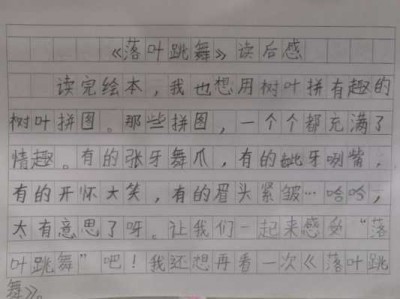 《落叶跳舞》读后感
读完绘本，我也想用树叶拼有趣的
树叶拼图。那些拼图，一个个都充满了
情趣。有的张牙舞爪，有的龇牙咧嘴，
有的开怀大笑，有的眉头紧皱…哈哈，
太有意思了呀。让我们一起来感受“落
叶跳舞”吧！我还想再看一次《落叶跳
舞》。